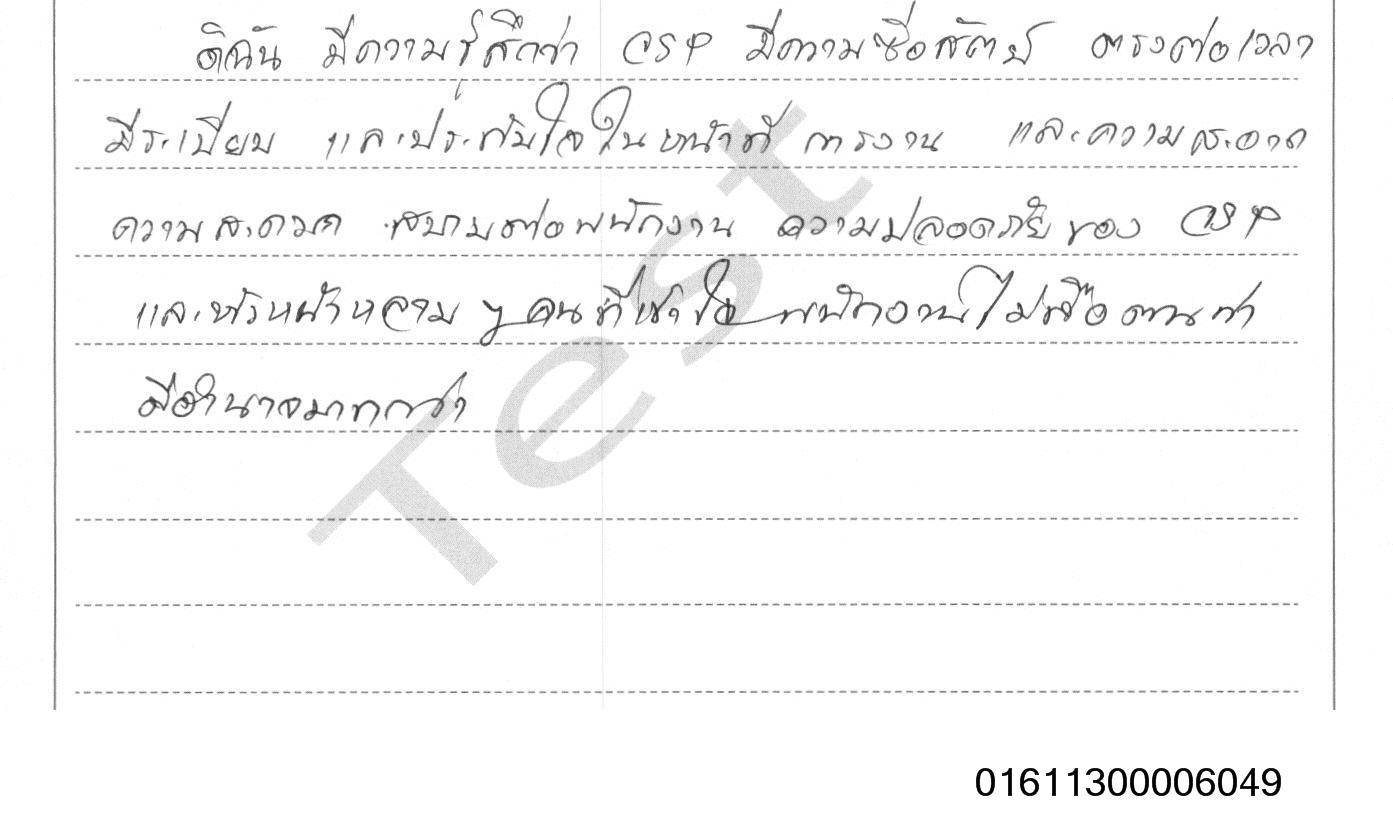 ดิฉัน มีความรู้สึกว่า CSP มีความซื่อสัตย์ ตรงต่อเวลา
มีระเบียบ และประทับใจในหน้าที่ การงาน และความสะอาด
ความสะดวก สบายต่อพนักงาน ความปลอดภัยของ CSP
และหัวหน้าหลาย ๆ คนที่เข้าใจ พนักงานไม่ถือตนว่า
มีอำนาจมากกว่า
Test
01611300006049